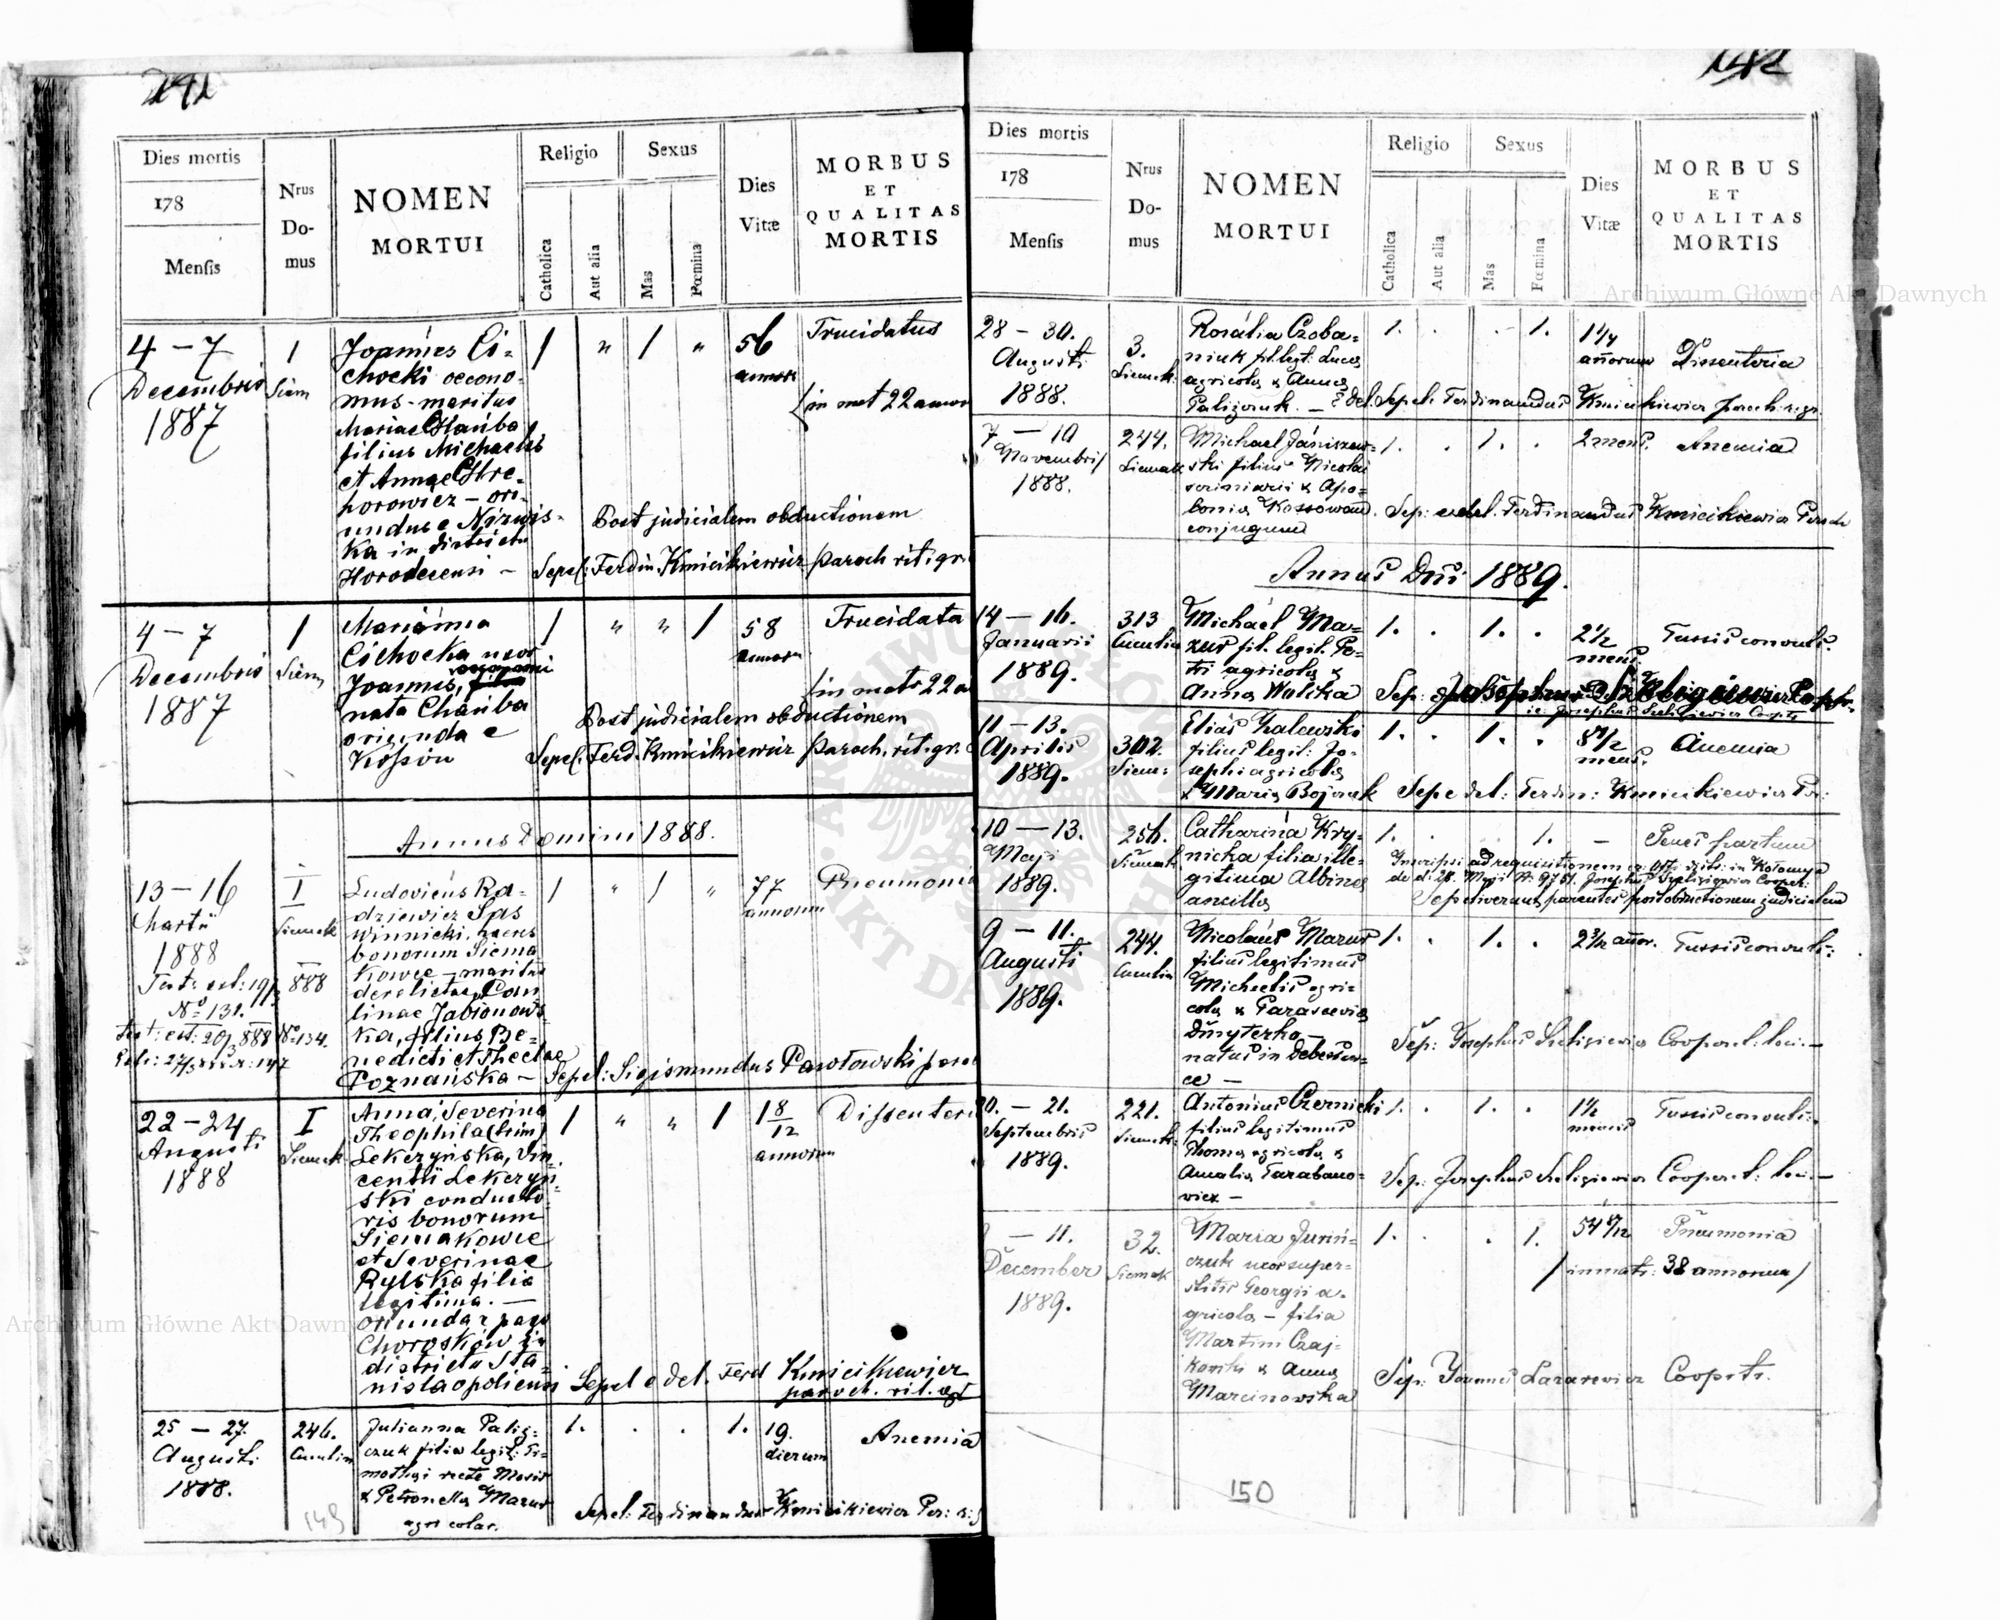 141
Dies mortis
178
Mensis
Nrus
Do-
mus
NOMEN
MORTUI
Religio
Catholica
Aut alia
Sexus
Mas
Fœmina
Dies
Vitæ
MORBUS
ET
QUALITAS
MORTIS
4 — 7
Decembris
1887
1
Siem
Joannes Ci-
chocki oecono-
mus - maritus
Mariae Chańba
filius Michaelis
et Annae
horowicz — ori-
undus e
ka in districtu
Horodecensi —
1 „ 1 „
56
annor
Trucidatus
(in mat 22 annor
Post judicialem obductionem
Sepel: Ferdin. Kmicikiewicz paroch rit. gr.
4 — 7
Decembris
1887
1
Siem
Marianna
Cichocka uxor
Joannis,
nata Chańba
oriunda e
Kossów
1 „ „ 1
58
annor
Trucidata
(in matr 22 a
Post judicialem obductionem
Sepel: Ferd. Kmicikiewicz paroch. rit. gr.
Annus Domini 1888.
13 — 16
Martii
1888
I
Siemak
888
Nº 131.
Nº 134.
Ludovicus Ra-
dziewicz Sas
Winnicki, haeres
bonorum Siema-
kowce — maritus
derelictae
linae Jabłonows
ka, filius Be-
nedicti et Theclae
Poznańska —
1 „ 1 „
77
annorum
Pneumonia
Sepel: Sigismundus Pawłowski paroch
22 — 24
Augusti
1888
I
Siemak
Anna, Severina
Theophila (trim)
Lekczyńska, Vin
centii Lekczyń-
ski conducto-
ris bonorum
Siemakowce
et Severinae
Rylska filia
legitima. —
oriunda e pago
Chorosków in
districtu Sta-
nislaopoliensi
1 „ „ 1
1 8/12
annorum
Dissenteri
Sepel e del. Ferd Kmicikiewicz
paroch. rit. gr
25 — 27.
Augusti
1888.
246.
Julianna Palij-
czuk filia legit: Ti-
mothei recte
& Petronella Mazur
agricolar.
1. . . 1.
19.
dierum
Anemia
Sepel: Ferdinandus Kmicikiewicz Par: r: g
149
142
Dies mortis
178
Mensis
Nrus
Do-
mus
NOMEN
MORTUI
Religio
Catholica
Aut alia
Sexus
Mas
Fœmina
Dies
Vitæ
MORBUS
ET
QUALITAS
MORTIS
28 — 30.
Augusti
1888.
3.
Siemak:
Rosalia Czoba-
niuk fil. legit: Lucae
agricola & Anna
Palijczuk. —
1. . . 1.
annorum
Dissenteria
e del: Sepel. Ferdinandus Kmicikiewicz paroch: r: gr.
7 — 10
Novembris
1888.
244.
Siemak
Michael Janiszew-
ski filius Nicolai
scriniarii & Apo-
lonia Kossowan
conjugum
1. . 1. .
2 mens.
Anemia
Sep: e del. Ferdinandus Kmicikiewicz Paroch
Annus Dni 1889.
14 — 16.
Januarii
1889.
313
Michael Ma-
zur fil. legit. Pe-
tri agricola &
Anna Wolska
1. . 1. .
2 1/2
mens.
Tussis convuls.
ic: Josephus Szeligiewicz Cooptr
11 — 13.
Aprilis
1889.
302.
Siem:
Elias Zalewski
filius legit: Jo-
sephi agricola
& Maria Bojczuk
1. . 1. .
mens.
Anemia
Sep e del: Ferdin: Kmicikiewicz Par:
10 — 13.
Maji
1889.
256.
Siemak
Catharina Kry-
nicka filia ille-
gitima Albina
ancilla
1. . . 1. —
Penes partum
Inscripsi ad requisitionem in Kołomyja
Sepeliverunt parentes post obductionem judicialem
9 — 11.
Augusti
1889.
244.
Nicolaus Mazur
filius legitimus
Michaelis agri-
cola & Parascevia
Dmyterko —
natus in Debesław-
ce —
1. . 1. .
annor.
Tussis convuls:
Sep: Josephus Szeligiewicz Cooper. l: loci. —
20. — 21.
Septembris
1889.
221.
Siemak:
Antonius Czernicki
filius legitimus
Thoma agricola &
Amalia Tarabano-
wicz —
1. . 1. .
1 1/2
mensis
Tussis convuls:
Sep: Josephus Szeligiewicz Cooper. l: loci. —
— 11.
December
1889.
32.
Siemak
Maria Jurij-
czuk uxor super-
stitis Georgii a-
gricola — filia
Martini Czaj-
kowski & Anna
Marcinowska
1. . . 1.
Pneumonia
/ in matr: 38 annorum /
Sep: Joannes Lazarewicz Cooptr.
150
Archiwum Główne Akt Dawnych
Archiwum Główne Akt Dawnych